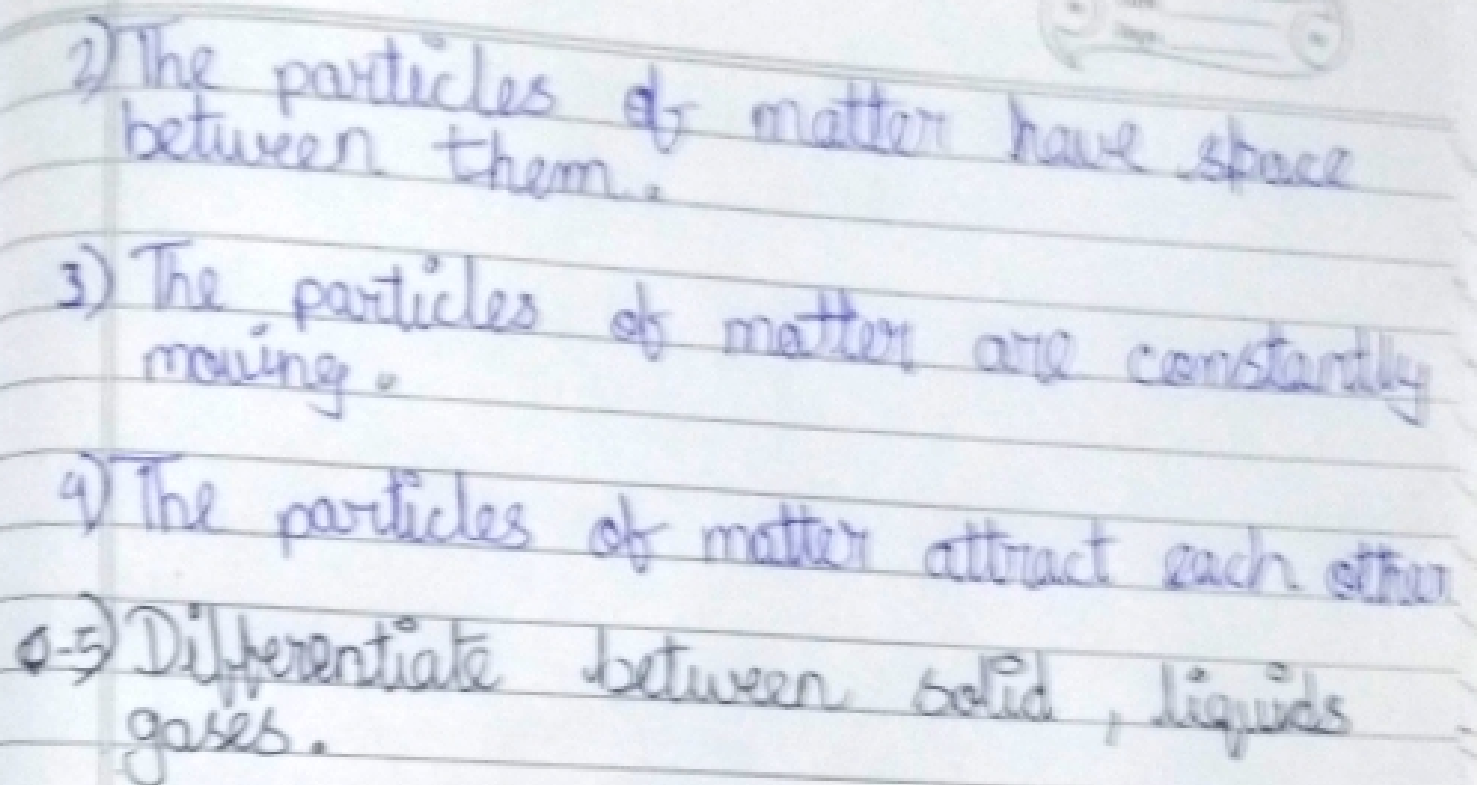 2) The particles of matter have space
between them.
3) The particles of matter are constantly
moving.
4) The particles of matter attract each other
Q-5) Differentiate between solid, liquids
gases.